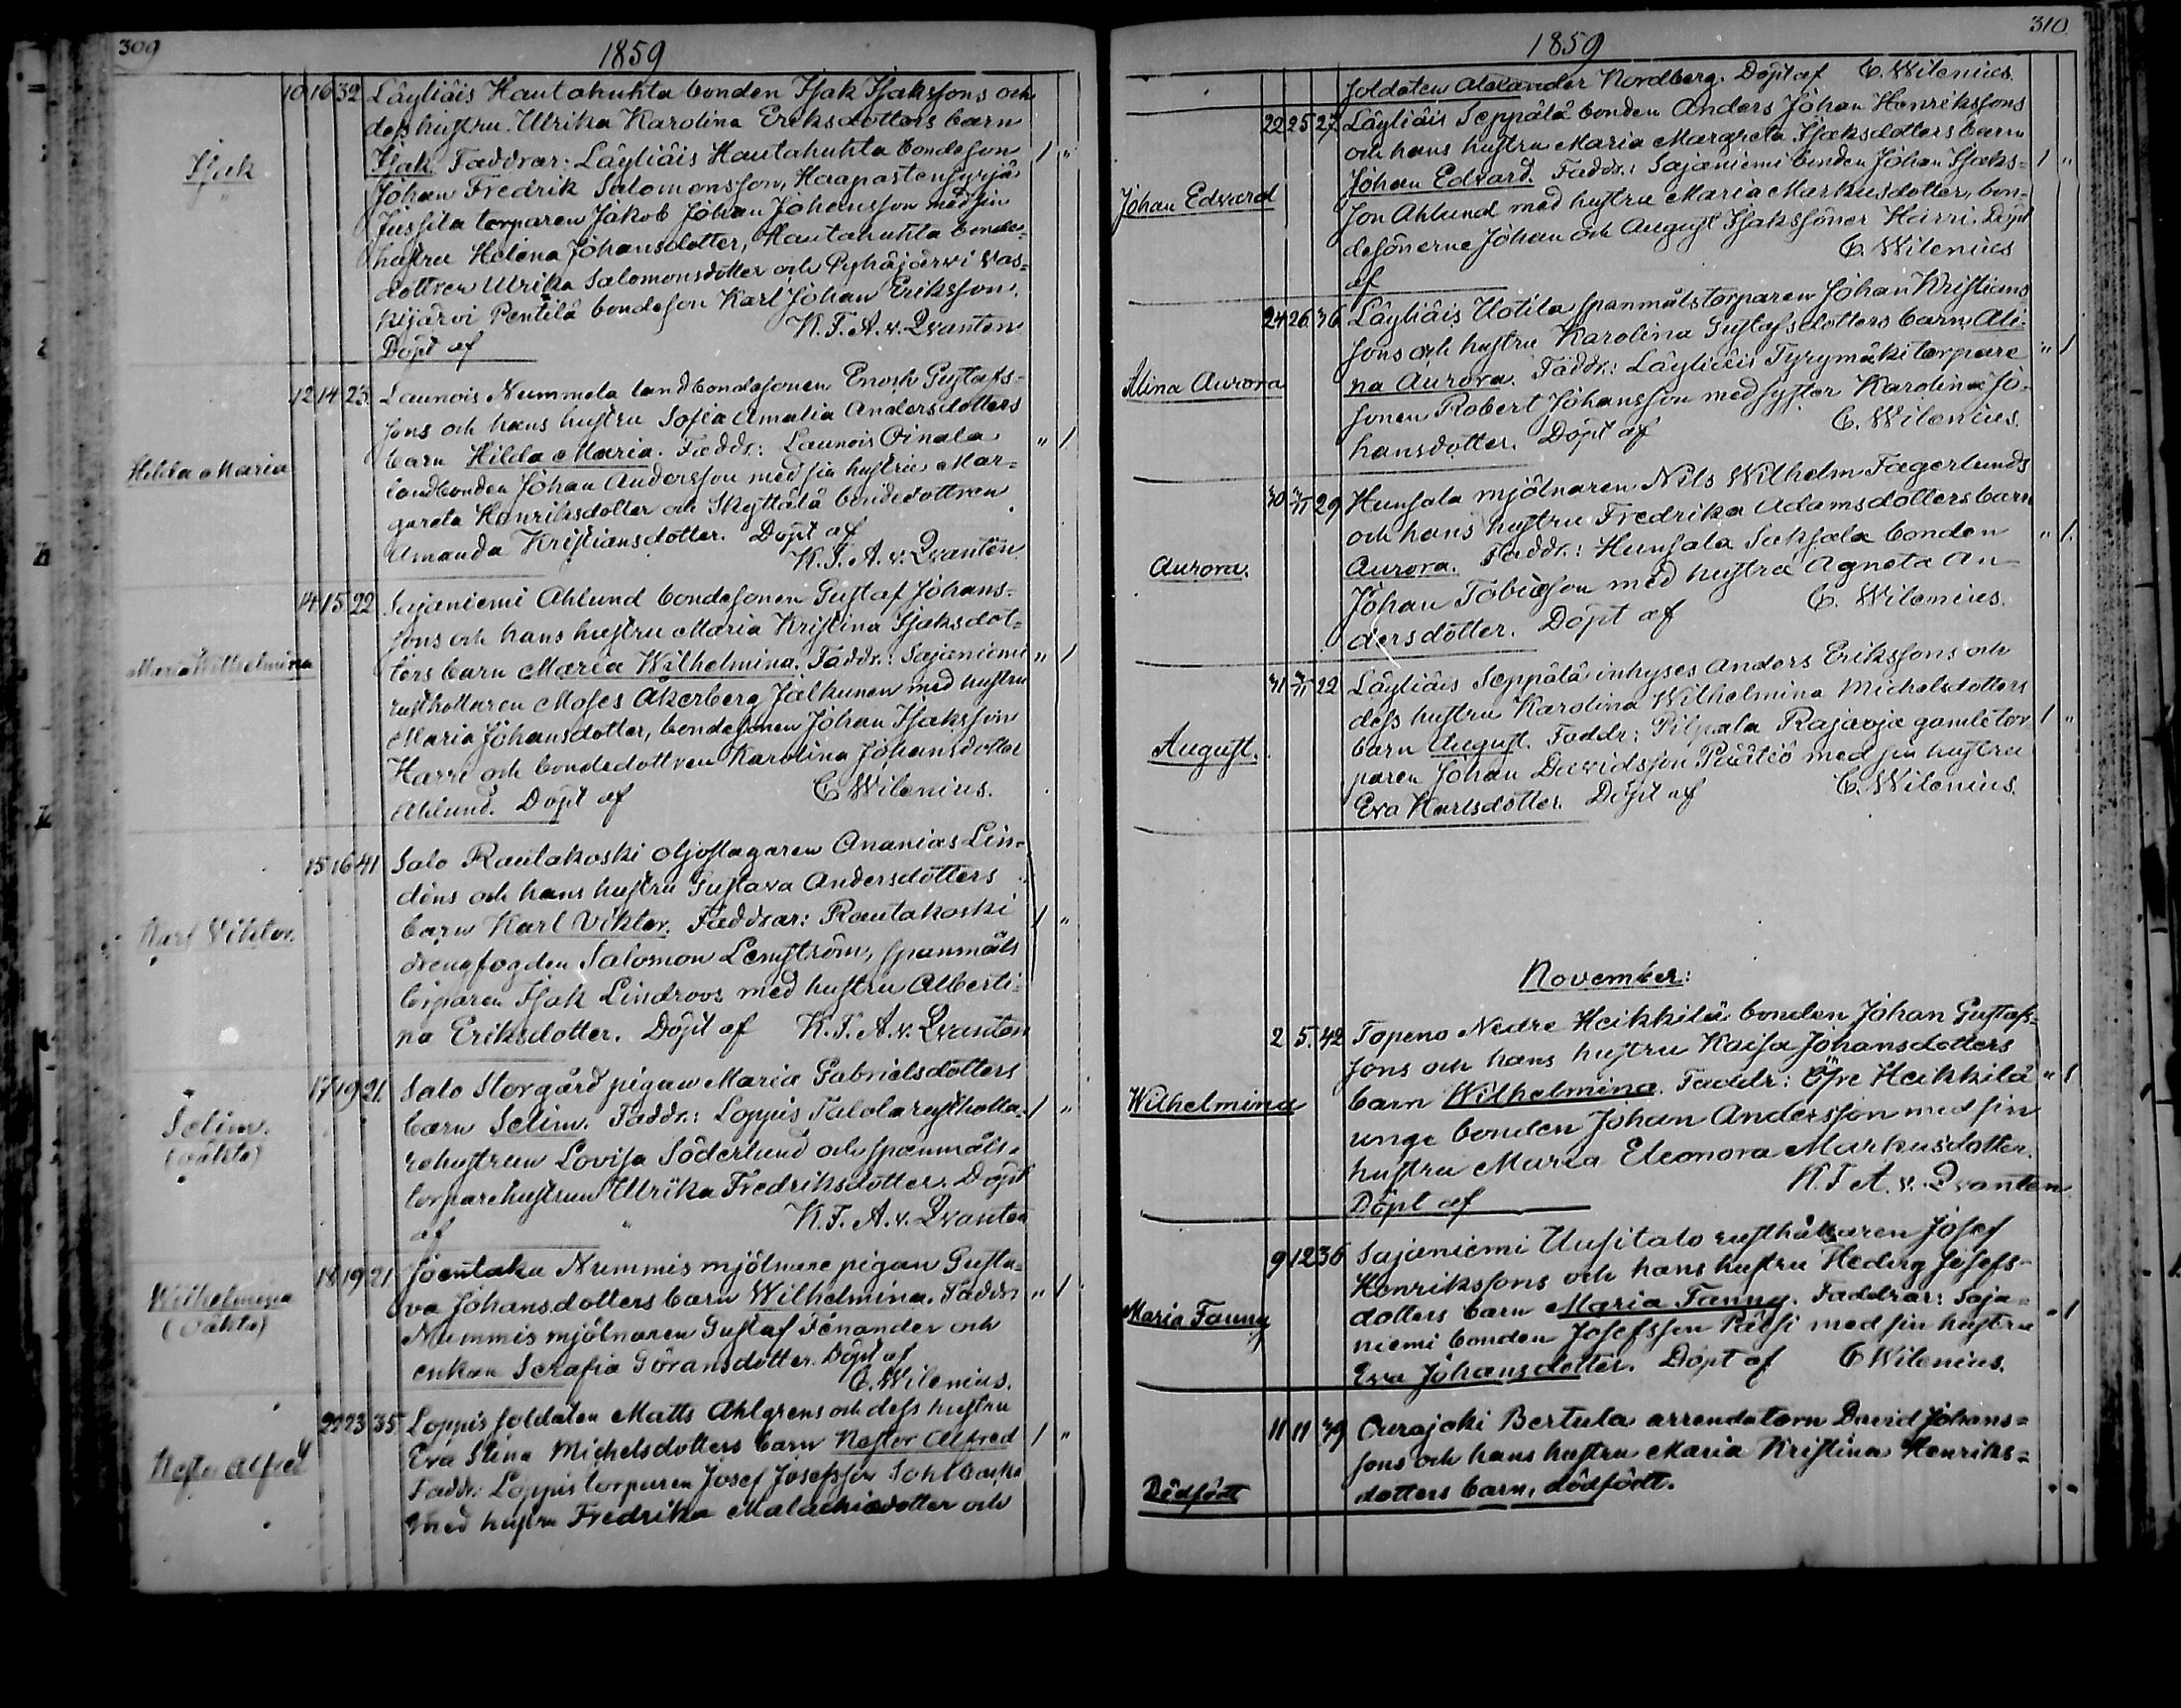 309
1859
Isak
10 16 32 Läyliäis Hautahuhta bonden Isak Isakssons och
dess hustru Ulrika Karolina Eriksdotters barn
Isak. Faddrar: Läyliäis Hautahuhta bondeson 1 "
Johan Fredrik Salomonsson, Haapastensyrjä
Jussila torparen Jakob Johan Johansson med sin
hustru Helena Johansdotter, Hautahuhta bonde-
dottren Ulrika Salomonsdotter och Pyhäjärvi Vas-
kijärvi Pentilä bondeson Karl Johan Eriksson.
Döpt af K. F. A. v. Qvanten
Hilda Maria
12 14 23. Launois Nummela landbondesonen Enoch Gustafs-
sons och hans hustru Sofia Amalia Andersdotters
barn Hilda Maria. Faddr.: Launois Oinala " 1
landbonden Johan Andersson med sin hustru Mar-
gareta Henriksdotter och Skyttälä bondedottren
Amanda Kristiansdotter. Döpt af
K. F. A. v. Qvanten
Maria Wilhelmina
14 15 22 Sajaniemi Ahlund bondesonen Gustaf Johans-
sons och hans hustru Maria Kristina Isaksdot-
ters barn Maria Wilhelmina. Faddr.: Sajaniemi " 1
rusthollaren Moses Åkerberg Jälkunen med hustru
Maria Johansdotter, bondesonen Johan Isaksson
Harri och bondedottren Karolina Johansdotter
Ahlund. Döpt af C. Wilenius.
Karl Viktor.
15 16 41 Salo Rautakoski oljeslagaren Ananias Lin-
déns och hans hustru Gustava Andersdotters
barn Karl Viktor. Faddrar: Rautakoski 1 "
drengfogden Salomon Lengström, spanmåls
torparen Isak Lindroos med hustru Alberti-
na Eriksdotter. Döpt af K. F. A. v. Qvanten
Selim.
(oäkta)
17 19 21. Salo Storgård pigan Maria Gabrielsdotters
barn Selim. Faddr.: Loppis Talola rustholla- 1 "
rehustrun Lovisa Söderlund och spanmåls-
torparehustrun Ulrika Fredriksdotter. Döpt
af K. F. A. v. Qvanten
Wilhelmina
(oäkta)
18 19 21. Joentaka Nummis mjölnare pigan Gusta-
va Johansdotters barn Wilhelmina. Faddr. " 1
Nummis mjölnaren Gustaf Fenander och
enkan Serafia Göransdotter. Döpt af
C. Wilenius.
Nestor Alfred
22 23 35 Loppis soldaten Matts Ahlgrens och dess hustru
Eva Stina Michelsdotters barn Nestor Alfred 1 "
Faddr.: Loppis torparen Josef Josefsson
med hustru Fredrika Malachiasdotter och
310
1859
soldaten Alexander Nordberg. Döpt af C. Wilenius.
Johan Edvard
22 25 27 Läyliäis Seppälä bonden Anders Johan Henrikssons
och hans hustru Maria Margreta Isaksdotters barn
Johan Edvard. Faddr.: Sajaniemi bonden Johan Isaks- 1 "
son Ahlund med hustru Maria Markusdotter, bon-
desönerne Johan och August Isakssöner Harri. Döpt
af C. Wilenius
Alina Aurora
24 26. 36 Läyliäis Uotila spanmålstorparen Johan Kristians
sons och hustru Karolina Gustafsdotters barn Ali-
na Aurora. Faddr.: Läyliäis Tyrymäki torpare " 1
sonen Robert Johansson med syster Karolina Jo-
hansdotter. Döpt af C. Wilenius.
Aurora.
30 29 Hunsala mjölnaren Nils Wilhelm Fagerlunds
och hans hustru Fredrika Adamsdotters barn
Aurora. Faddr.: Hunsala Saksala bonden " 1.
Johan Tobiasson med hustru Agneta An-
dersdotter. Döpt af C. Wilenius.
August.
31 22 Läyliäis Seppälä inhyses Anders Erikssons och
dess hustru Karolina Wilhelmina Michelsdotters
barn August. Faddr: Pilpala Rajaoja gamle tor 1 "
paren Johan Davidsson med sin hustru
Eva Karlsdotter. Döpt af C. Wilenius.
November:
Wilhelmina
2 5. 42 Topeno Nedre Heikkilä bonden Johan Gustafs-
sons och hans hustru Kaisa Johansdotters
barn Wilhelmina. Faddr: Öfre Heikkilä " 1
unge bonden Johan Andersson med sin
hustru Maria Eleonora Markusdotter.
Döpt af K. F. A. v. Qvanten
Maria Fanny
9 12 36 Sajaniemi Uusitalo rusthållaren Josef
Henrikssons och hans hustru Hedvig Josefs-
dotters barn Maria Fanny. Faddrar: Saja- " 1
niemi bonden Josefsson Pätsi med sin hustru
Eva Johansdotter. Döpt af C. Wilenius.
Dödfödt
11 11 39 Ourajoki Bertula arrendatorn David Johans-
sons och hans hustru Maria Kristina Henriks-
dotters barn, dödfödt. " "